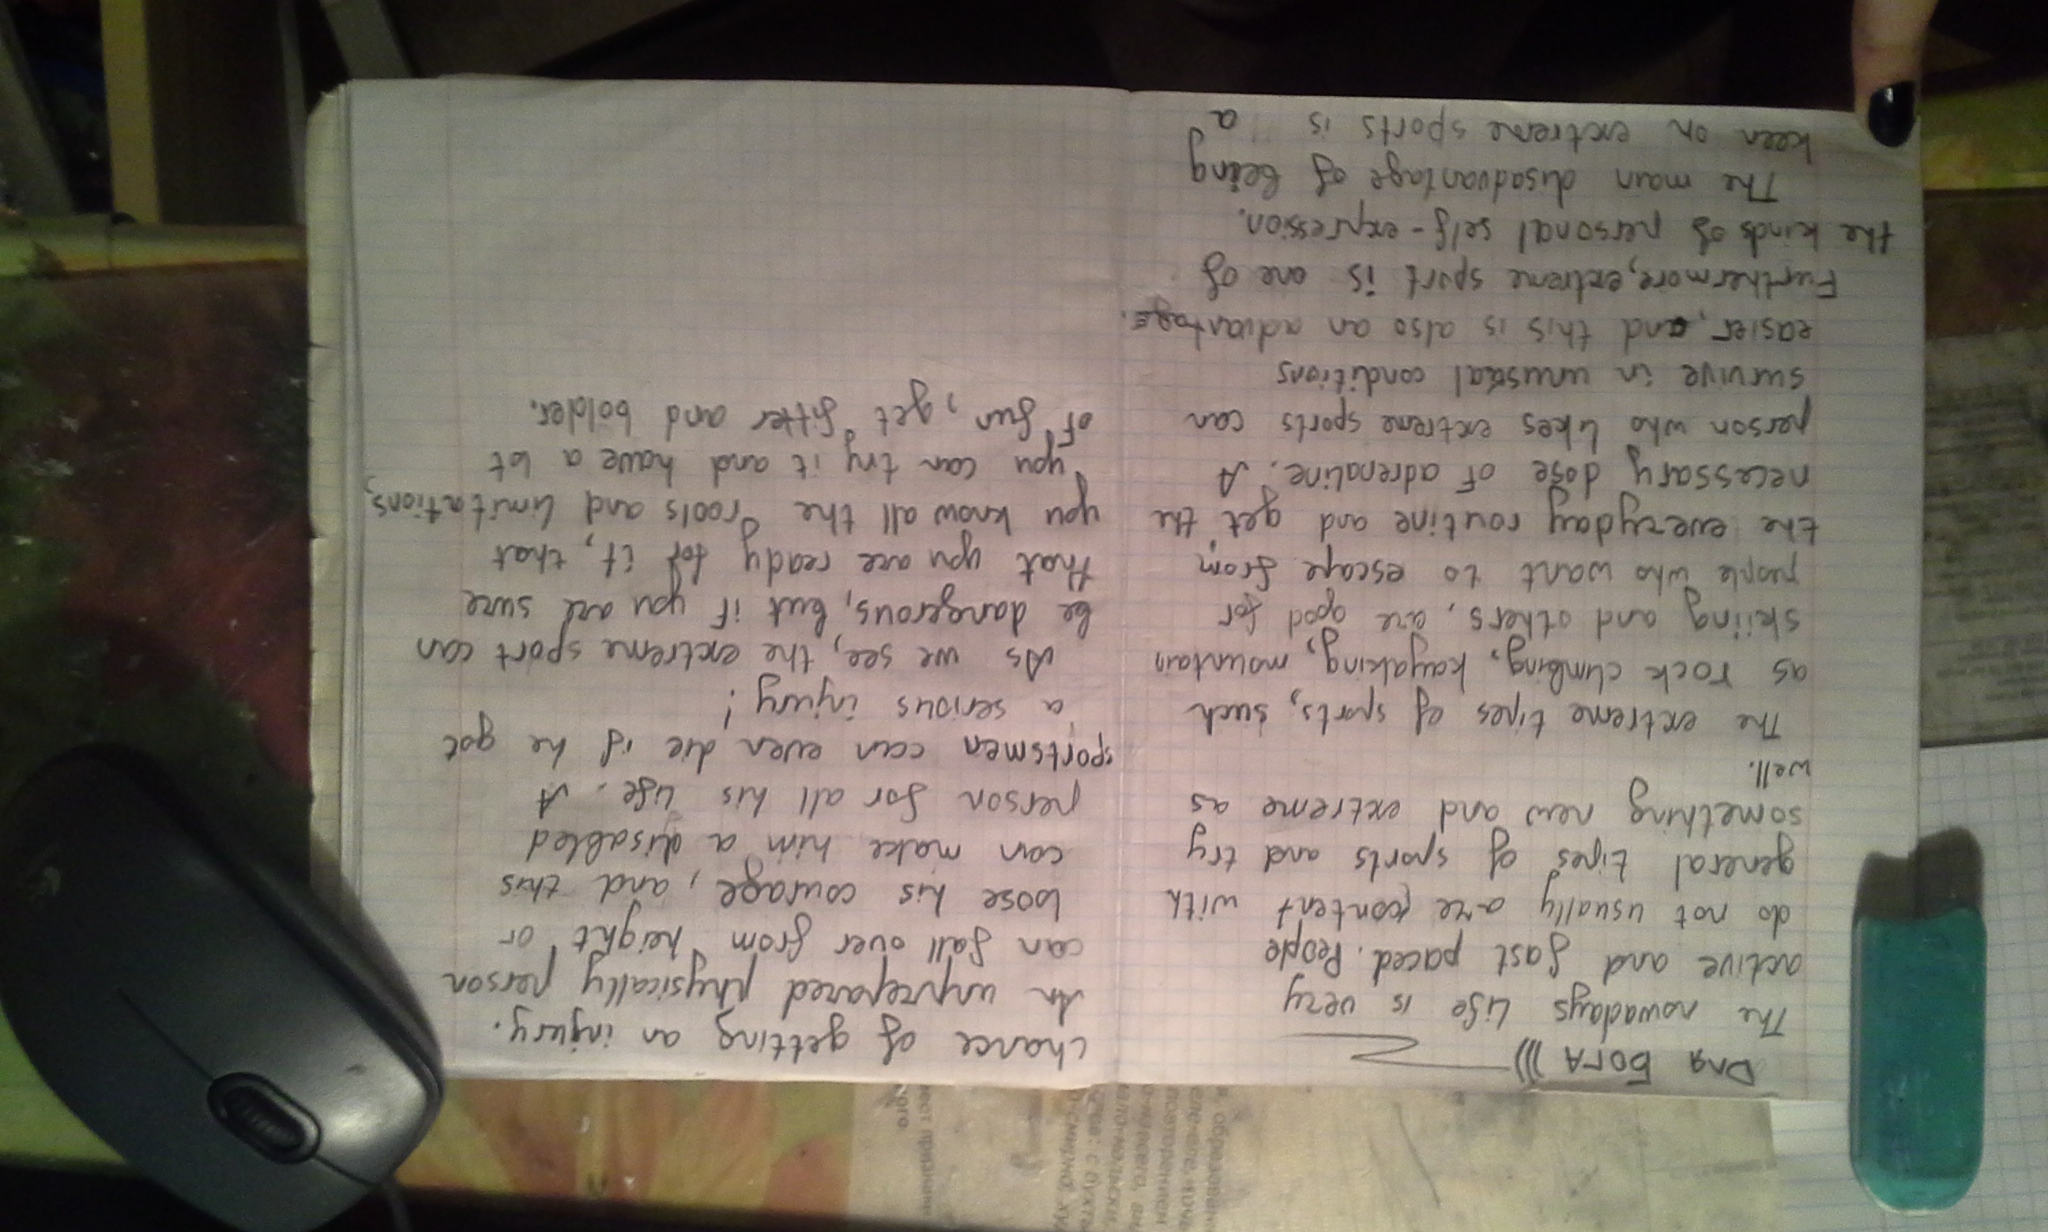 Для БОГА )))
The nowadays life is very
active and fast paced. People
do not usually are content with
general tipes of sports and try
something new and extreme as
well.
The extreme tipes of sports, such
as rock climbing, kayaking, mountain
skiing and others, are good for
people who want to escape from
the everyday routine and get the
necessary dose of adrenaline. A
person who likes extreme sports can
survive in unusual conditions
easier, and this is also an advantage.
Furthermore, extreme sport is one of
the kinds of personal self-expression.
The main disadvantage of being
keen on extreme sports is a
chance of getting an injury.
An unprepared physically person
can fall over from height or
loose his courage, and this
can make him a disabled
person for all his life. A
sportsmen can even die if he got
a serious injury!
As we see, the extreme sport can
be dangerous, but if you are sure
that you are ready for it, that
you know all the rools and limitations,
you can try it and have a lot
of fun, get fitter and bolder.